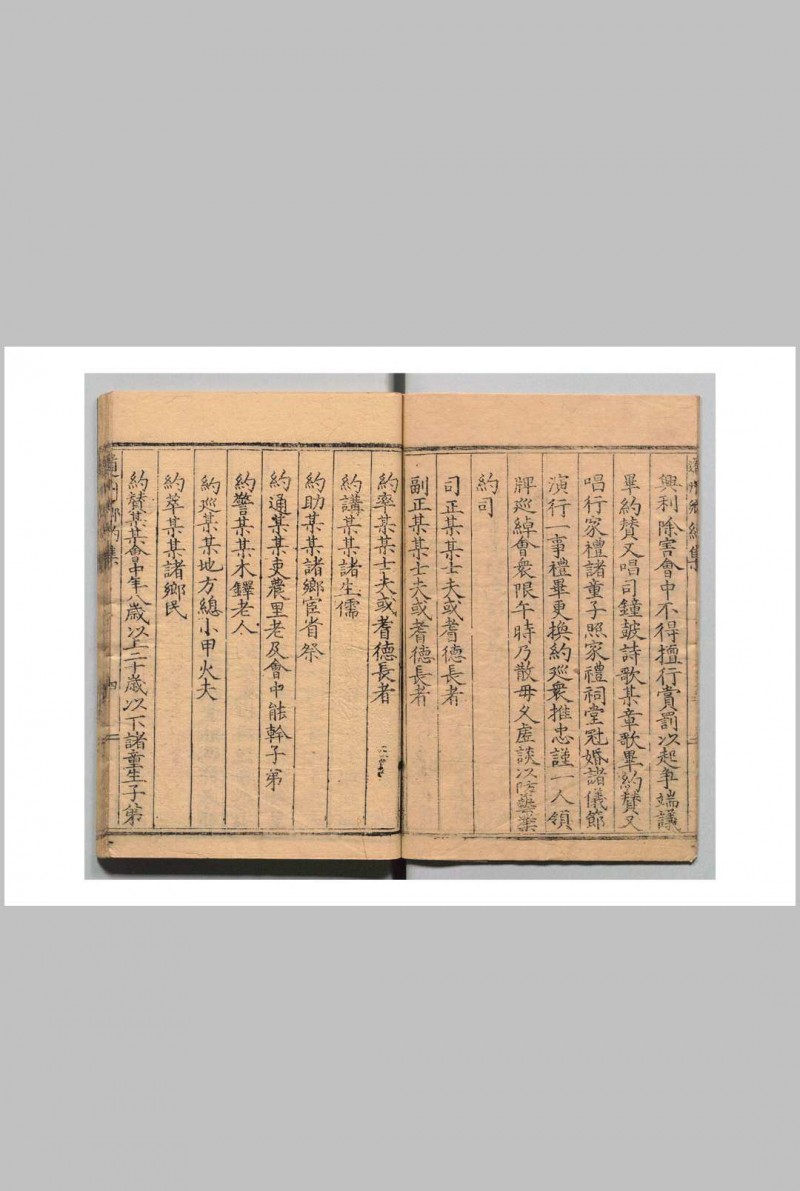 興利除害會中不得擅行賞罰以起爭端議
畢約贊又唱司鐘皷詩歌某章歌畢約贊又
唱行家禮諸童子照家禮祠堂冠婚諸儀節
演行一事禮畢更換約廵衆推忠謹一人領
牌廵綽會衆限午時乃散毋久虛談以防藝業
約司
司正某某士夫或耆德長者
副正某某士夫或耆德長者
約率某某士夫或耆德長者
約講某某諸生儒
約助某某諸鄉宦省祭
約通某某吏農里老及會中能幹子弟
約警某某木鐸老人
約廵某某地方總小甲火夫
約萃某某諸鄉民
約贊某某會中年八歲以上二十歲以下諸童生子弟
鄉約集
四